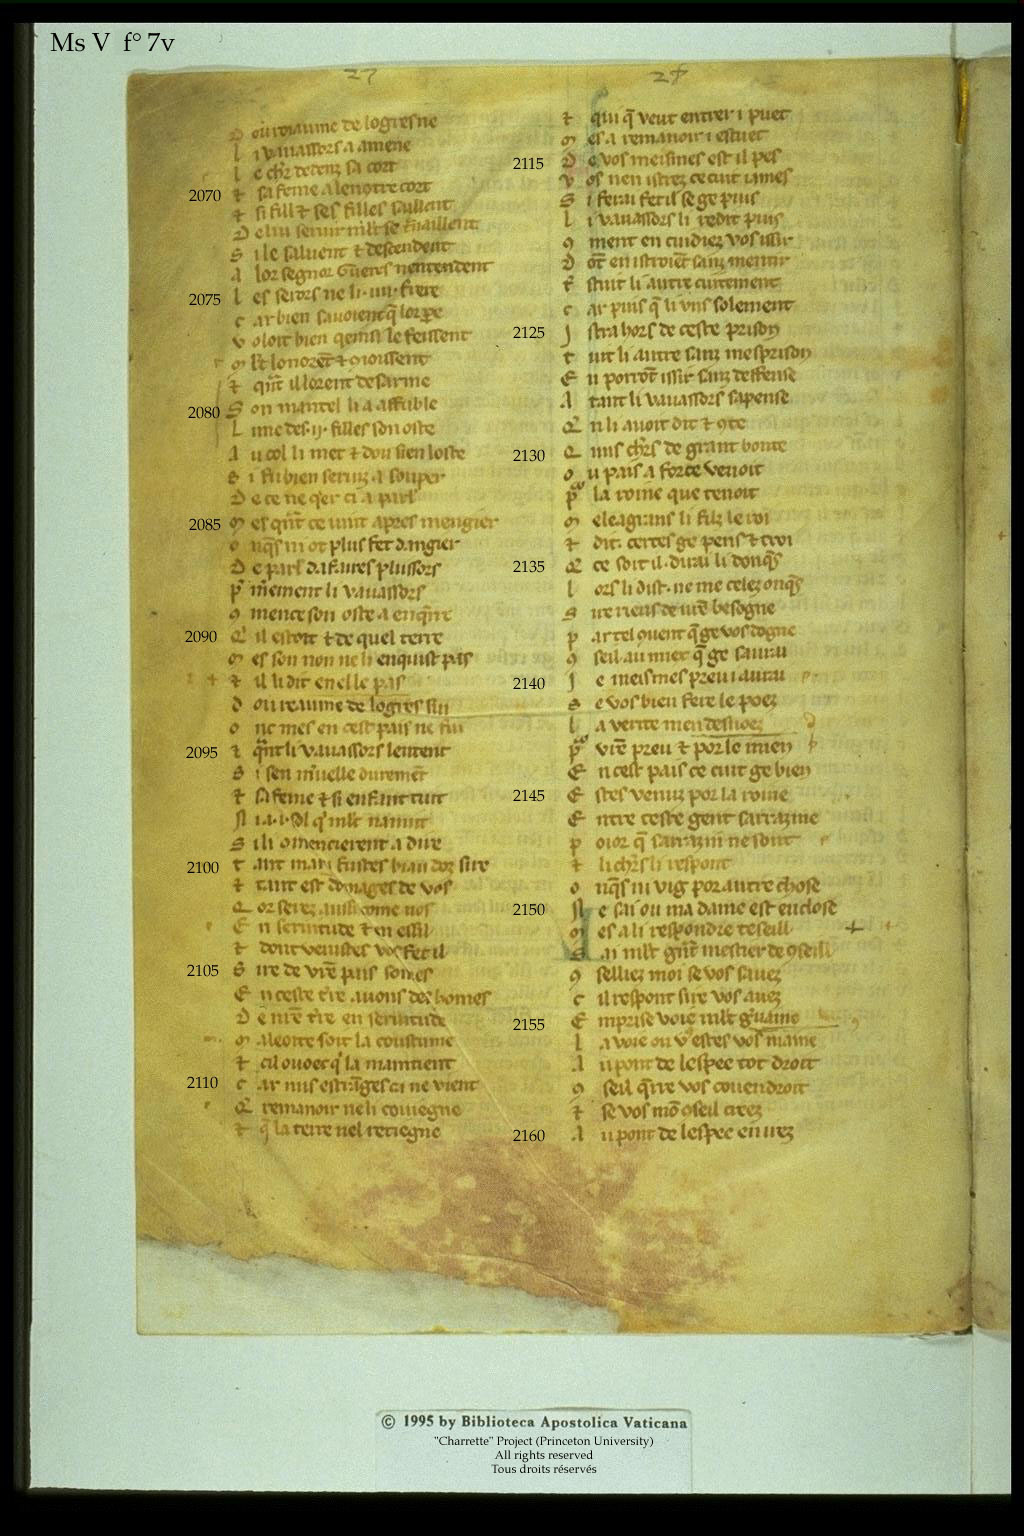 Ms V f° 7v
27
28
D ou roiaume de logres ne
l i vauassors a amene
l e chr̄ dedenz sa cort
2070 ⁊ sa feme alencōtre cort
⁊ si fill ⁊ ses filles saillent
D e lui seruir mlt se
S i le saluent ⁊ descendent
A lor segnor
2075 l es serors ne li .iiii. frere
c ar bien sauoient q̄ lor pe
v oloit bien qeinsi le feissent
m lt lonorēt ⁊
⁊ qn̄t il lorent desarme
2080 S on mantel li a affuble
L une des .ij. filles son oste
A u col li met ⁊ dou sien loste
S i fu bien seruiz a souper
D e ce ne qier ci a parl'
2085 m es qn̄t ce uint apres mengier
o nq̄s ni ot plus fet dangier
D e parl' dafaires plussors
p̄ mēment li vauassors
9 mence son oste a enq̄rre
2090 Q' il estoit ⁊ de quel terre
m es son non ne li enquist pas
⁊ il li dit en elle pas
D ou reaume de logres sui
o nc mes en cest pais ne fui
2095 ⁊ qn̄t li vauassors lentent
S i sen m'uelle duremēt
⁊ sa feme ⁊ si enfant tuit
N i a .i. sol q' mlt nanuit
S i li 9mencierent a dire
2100 t ant mar i fustes biau doz sire
⁊ tant est domages de vos
Q or serez ausi come nos
E n seruitude ⁊ en essil
⁊ dont venistes vos fet il
2105 S ire de vr̄e pais somes
E n ceste t're auons dez homes
D e nr̄e t're en seruitude
m aleoite soit la coustume
⁊ cil ouoec q' la maintient
2110 c ar nus estrāges ca ne vient
Q' remanoir ne li couiegne
⁊ q̄ la terre nel retiegne
⁊ qui q̄ veut entrer i puet
m es a remanoir i estuet
2115 D e vos meismes est il pes
v os nen istrez ce cuit iames
S i ferai fet il se ge puis
L i vauassors li redit puis
9 ment en cuidiez vos issir
D ōt en istroiēt sanz mentir
t̄ stuit li autre cuitement
c ar puis q̄ li vns solement
2125 J stra hors de ceste prison
t uit li autre sanz mesprison
E n porrōt issir sanz deffense
A tant li vauassors sapense
Q' n li auoit dit ⁊ 9te
2130 Q nus chrs de grant bonte
o u pais a force venoit
p̄ la roine que tenoit
m eleagrans li filz le roi
⁊ dit. certes ge pens ⁊ croi
2135 Q' ce soit il. dirai li donq̄s
l ors li dist. ne me celez onq̄s
S ire riens de vr̄e besogne
p ar tel 9uent q̄ ge vos dogne
9 seil au miez q̄ ge saurai
2140 J e meismes preu i aurai
S e vos bien fere le poez
L a verite men desnoez
p̄ vr̄e preu ⁊ por le mien
E n cest pais ce cuit ge bien
2145 E stes venuz por la roine
E ntre ceste gent sarrazine
p oior q̄ sarrazin ne sont
⁊ li chrs li respont
o nq̄s ni vig por autre chose
2150 N e sai ou ma dame est enclose
m es a li respondre teseill
S ai mlt grn̄t mestier de 9seill
9 seilliez moi se vos sauez
c il respont sire vos auez
2155 E mprise voie mlt g'uaine
L a voie ou v' estes vos maine
A u pont de lespee tot droit
9 seil q̄rre vos couendroit
⁊ se vos mō 9seil creez
2160 A u pont de lespee en irez
© 1995 by Biblioteca Apostolica Vaticana
"Charrette" Project (Princeton University)
All rights reserved
Tous droits réservés